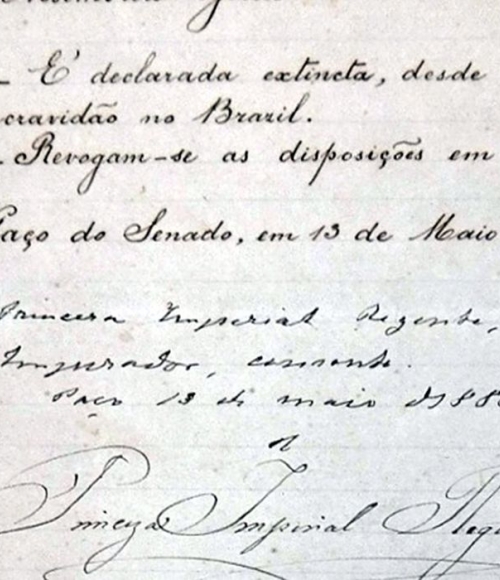 É declarada extincta, desde
cravidão no Brazil.
Revogam-se as disposições em
Paço do Senado, em 13 de Maio
Princeza Imperial Regente,
Imperador, consente.
Paço 13 de maio de 188
A
Princeza Imperial Reg